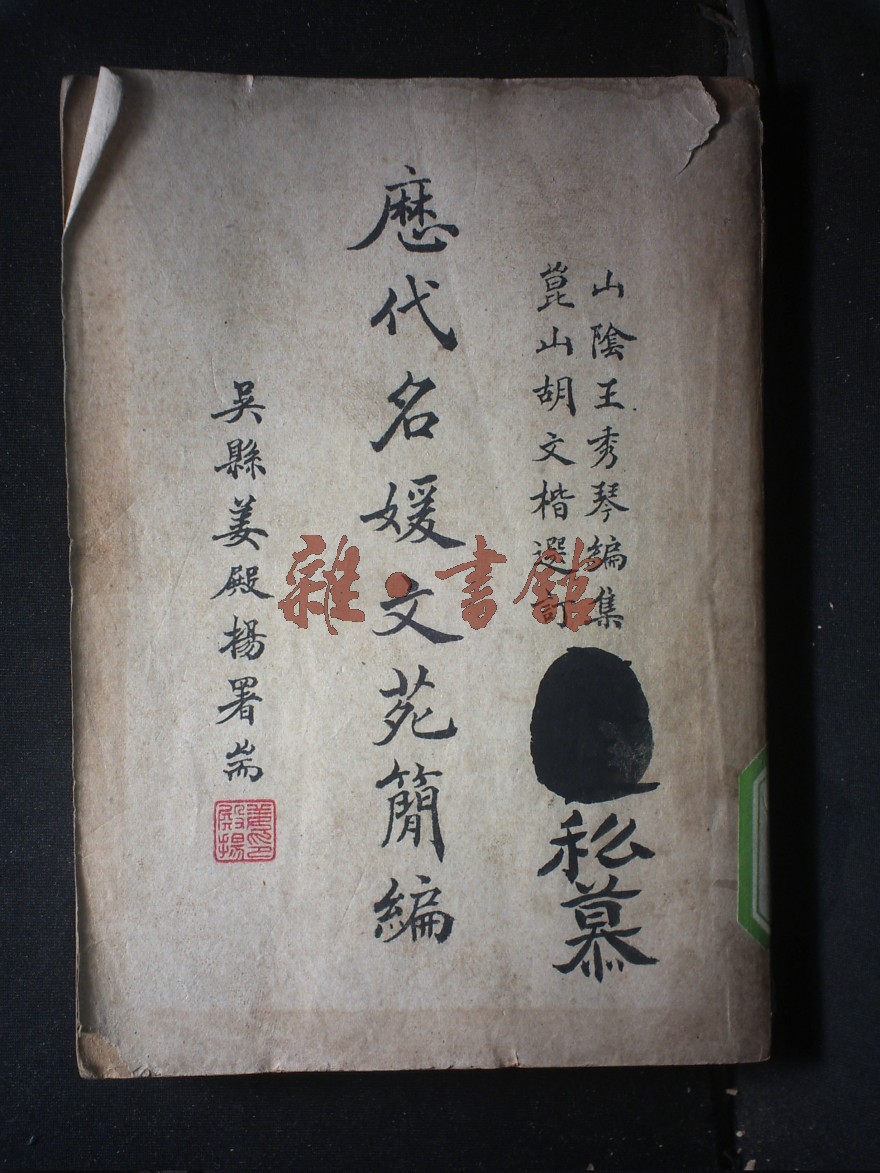 山陰王秀琴編集
崑山胡文楷選訂
私慕
歷代名媛文苑簡編
吳縣姜殿揚署耑
姜殿揚印
雜·書館